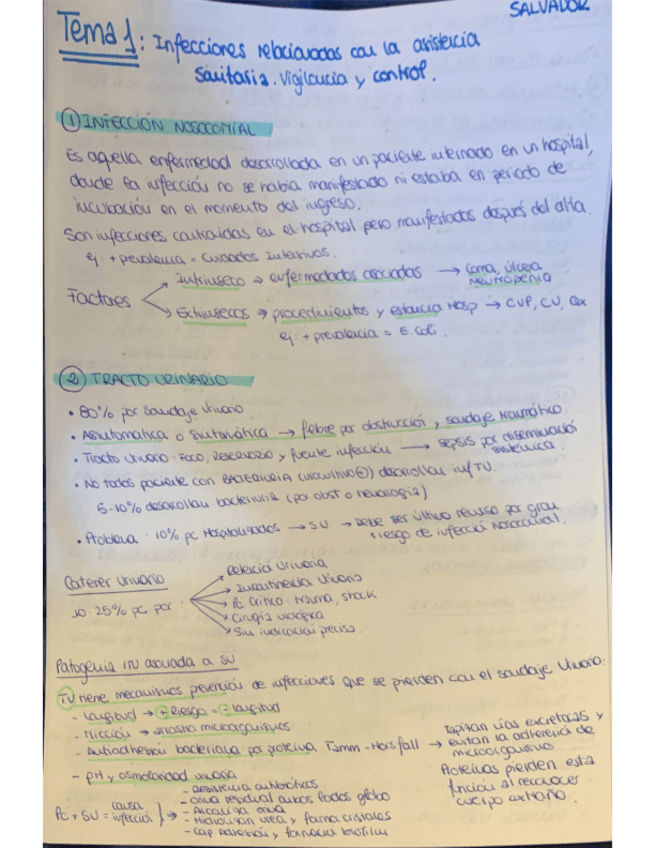 SALVADOR
Tema 1: Infecciones relacionadas con la asistencia
Sanitaria. Vigilancia y control.
① INFECCIÓN NOSOCOMIAL
Es aquella enfermedad desarrollada en un paciente internado en un hospital,
donde la infección no se había manifestado ni estaba en periodo de
incubación en el momento del ingreso.
Son infecciones contraidas en el hospital pero manifestados después del alta.
ej: + prevalencia = Cuidados Intensivos.
Factores
Intrínseco → enfermedades asociadas → Coma, úlcera
NEUTROPENIA
Extrínsecos → procedimientos y estancia Hosp → CVP, CU, Qx
ej: + prevalencia = E. Coli.
② TRACTO URINARIO
• 80% por sondaje Urinario
• Asintomática o Sintomática → fiebre por obstrucción y sondaje traumático
• Tracto Urinario: FOCO, RESERVORIO y fuente infección → sepsis por diseminación
sistémica.
• No todos paciente con BACTERIURIA (urocultivo ⊕) desarrollan inf TU.
5-10% desarrollan bacteriuria (por obst o neurología)
• Problema: 10% pc Hospitalizados → SU → Debe ser último recurso por gran
riesgo de infección Nosocomial.
Catéter Urinario
10-25% pc por
Retención Urinaria
Incontinencia Urinaria
Pc crítico: trauma, shock
Cirugía urológica
Sin indicación precisa.
Patogenia ITU asociada a SU
TU tiene mecanismos prevención de infecciones que se pierden con el sondaje Urinario:
- Longitud → + Riesgo = - longitud
- Micción → arrastra microorganismos
- Antiadhesión bacteriana por proteína Tamm-Horsfall → Tapizan vías excretoras y
evitan la adherencia de
microorganismo
Proteínas pierden esta
función al reconocer
cuerpo extraño.
- pH y osmolaridad urinaria
Pc + SU = causa infección } →
- Resistencia antibióticos
- orina residual ambos lados globo
- Alcaliniza orina
- Hidrolizan urea y forma cristales
- Cap Adhesión y formación biofilm